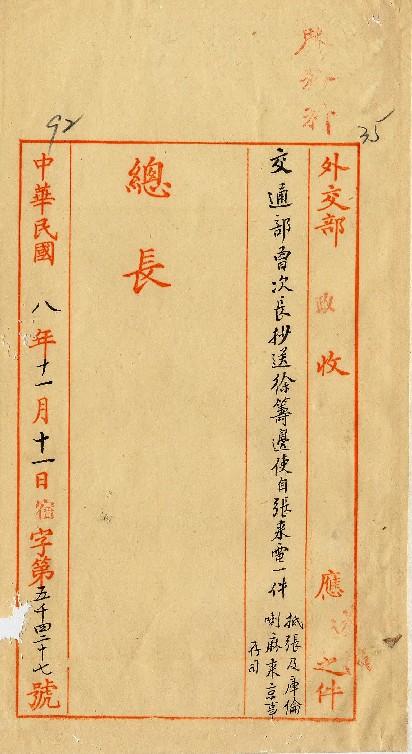 35
92
外交部 政 收 應 之件
交通部曾次長抄送徐籌邊使自張來電一件
抵張及庫倫
喇麻來京事
存司
總長
中華民國八年十一月十一日宿字第五千四二十七號